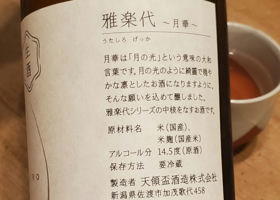 雅楽代
～月華～
うたしろ げっか
月華は「月の光」という意味の大和
言葉です。月の光のように綺麗で穏や
かな凛としたお酒になりますように、
そんな願いを込めて醸しています。
雅楽代シリーズの中核をなすお酒です。
原材料名 米(国産)、
米麹(国産米)
アルコール分 14.5度(原酒)
保存方法 要冷蔵
製造者 天領盃酒造株式会社
新潟県佐渡市加茂歌代458
生酒